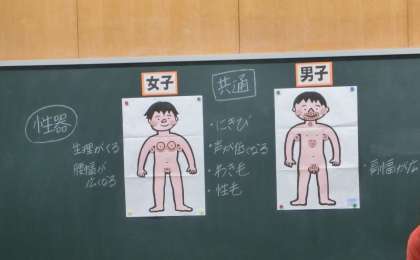 女子
共通
男子
性器
生理がくる
腰幅が
広くなる
・にきび
・声が低くなる
・わき毛
・性毛
・肩幅が広